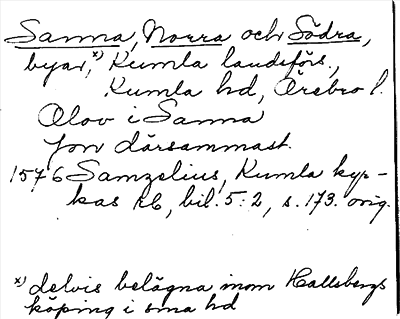 Sanna, Norra och Södra,
byar,x) Kumla landsförs.,
Kumla hd, Örebro l.
Olov i Sanna
Jon därsammast.
1576 Samzelius, Kumla kyr-
kas rb, bil. 5:2, s. 173. orig.
x) delvis belägna inom Hallsbergs
köping i sma hd